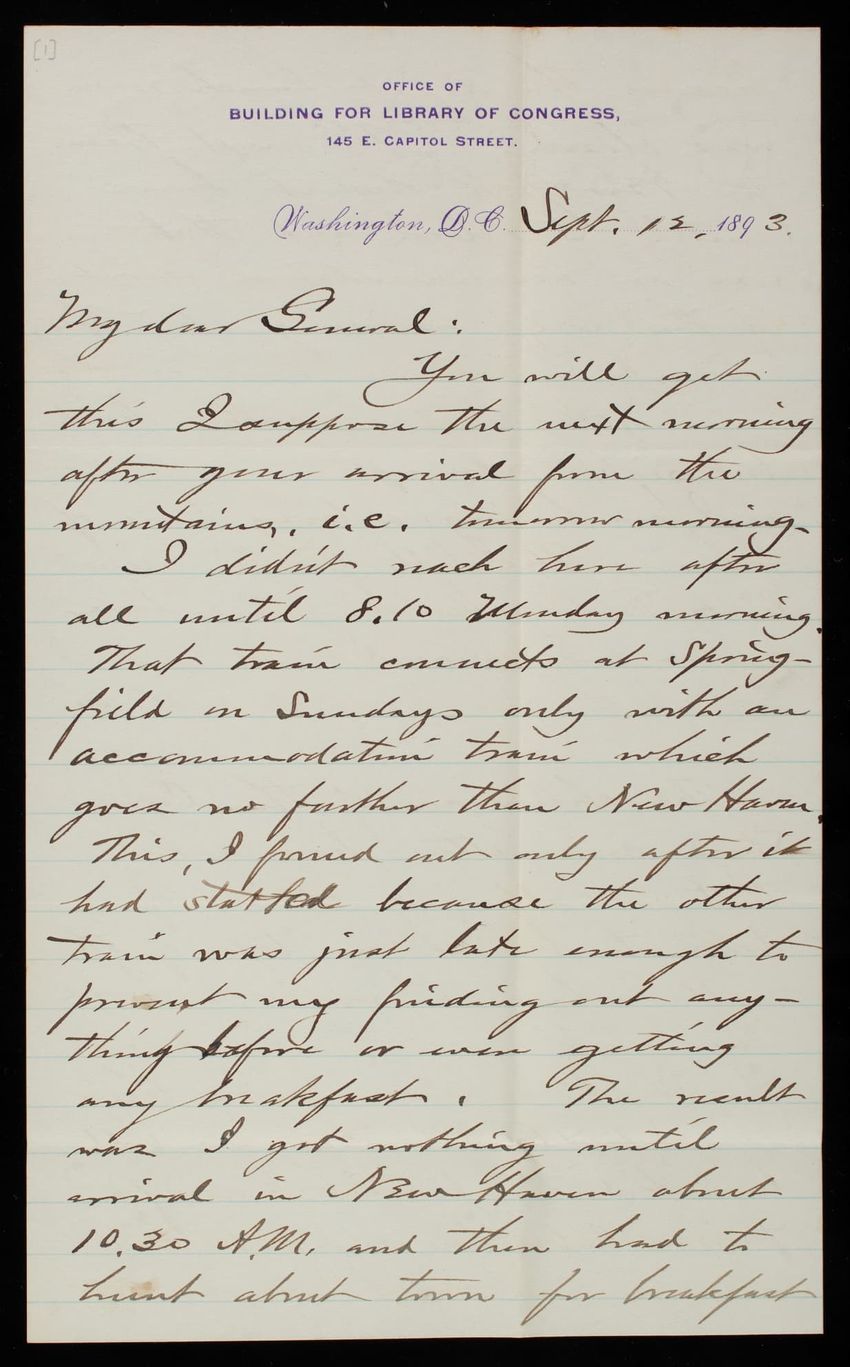 [1]
OFFICE OF
BUILDING FOR LIBRARY OF CONGRESS,
145 E. CAPITOL STREET.
Washington, D.C. Sept. 12, 1893.
My dear General:
You will get
this I suppose the next morning
after your arrival from the
mountains, i.e. tomorrow morning.
I didn't reach here after
all until 8.10 Monday morning.
That train connects at Spring-
field on Sundays only with an
accommodation train which
goes no farther than New Haven.
This, I found out only after it
had started because the other
train was just late enough to
prevent my finding out any-
thing before or even getting
any breakfast. The result
was I got nothing until
arrival in New Haven about
10.30 A.M. and then had to
hunt about town for breakfast